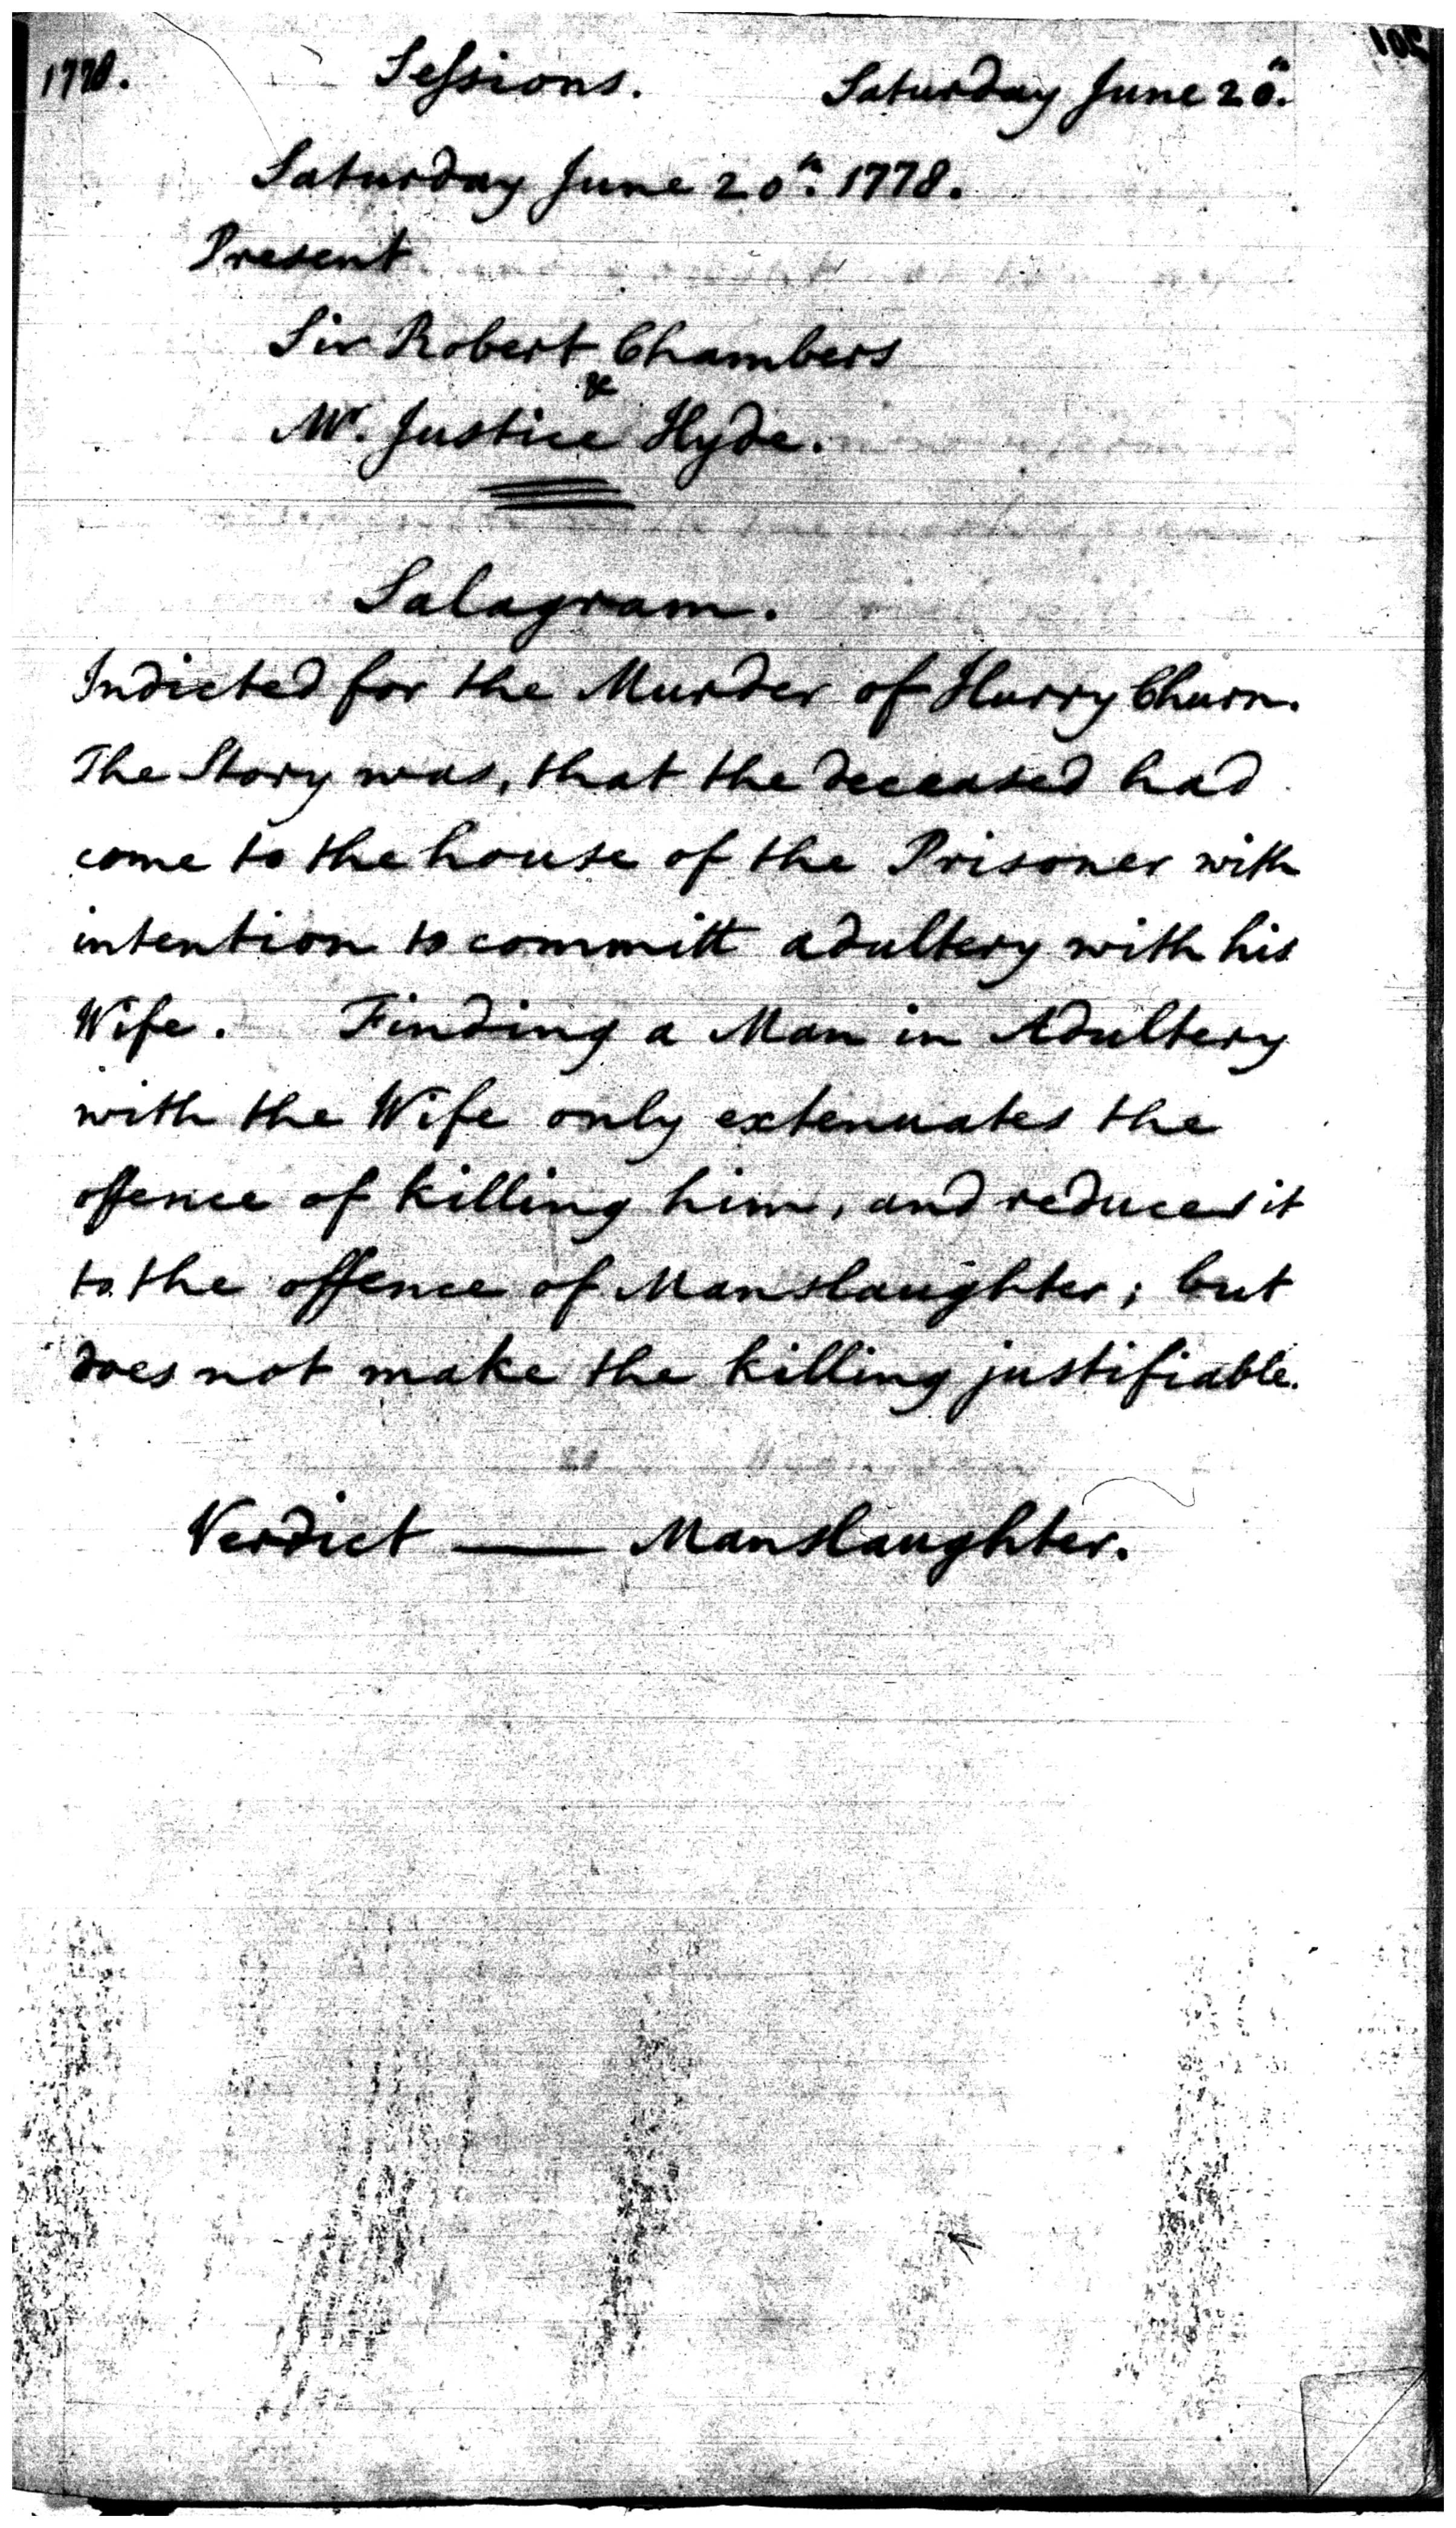 1778. Sessions. Saturday June 20th.
Saturday June 20th. 1778.
Present
Sir Robert Chambers
&
Mr. Justice Hyde.
Salagram.
Indicted for the Murder of Hurry Churn.
The Story was, that the deceased had
come to the house of the Prisoner with
intention to committ adultery with his
Wife. Finding a Man in Adultery
with the Wife only extenuates the
offence of killing him, and reduces it
to the offence of Manslaughter; but
does not make the killing justifiable.
Verdict — Manslaughter.